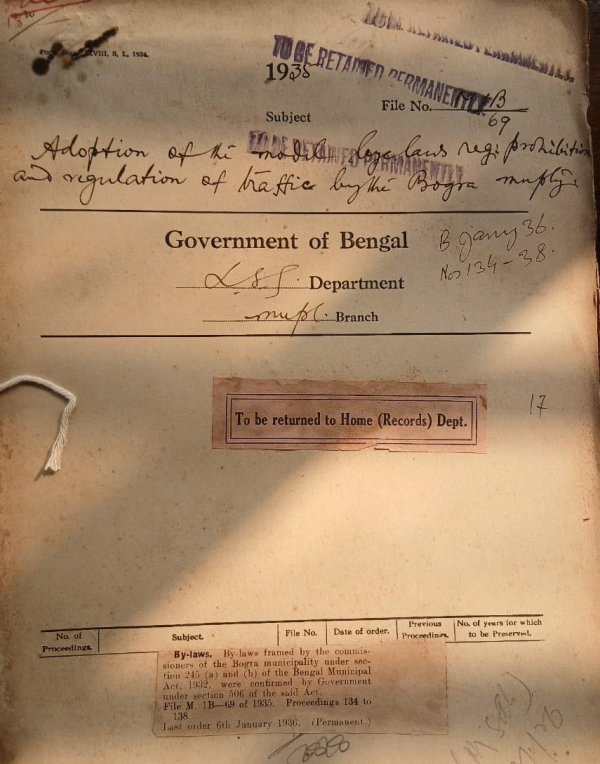 TO BE RETAINED PERMANENTLY.
XVIII, S. I., 1934.
TO BE RETAINED PERMANENTLY.
1935
File No. M 1B
69
Subject
TO BE RETAINED PERMANENTLY
Adoption of the model bye laws reg: prohibition
and regulation of traffic by the Bogra muplty:
Government of Bengal
B Jany 36.
Nos 134-38.
L.S.G. Department
mupl. Branch
To be returned to Home (Records) Dept.
17
No. of Proceedings.
Subject.
File No.
Date of order.
Previous Proceedings.
No. of years for which to be Preserved.
By-laws. By-laws framed by the commis-
sioners of the Bogra municipality under sec-
tion 245 (a) and (b) of the Bengal Municipal
Act, 1932, were confirmed by Government
under section 506 of the said Act.
File M. 1B—69 of 1935. Proceedings 134 to
138.
Last order 6th January 1936. (Permanent.)